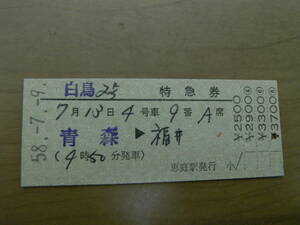 白鳥2号 特急券
7月13日4号車9番A席
青森▶福井
(4時50分発車)
恵庭駅発行 小
58.-7.-9.
¥2500
¥2900
¥3300
¥3700